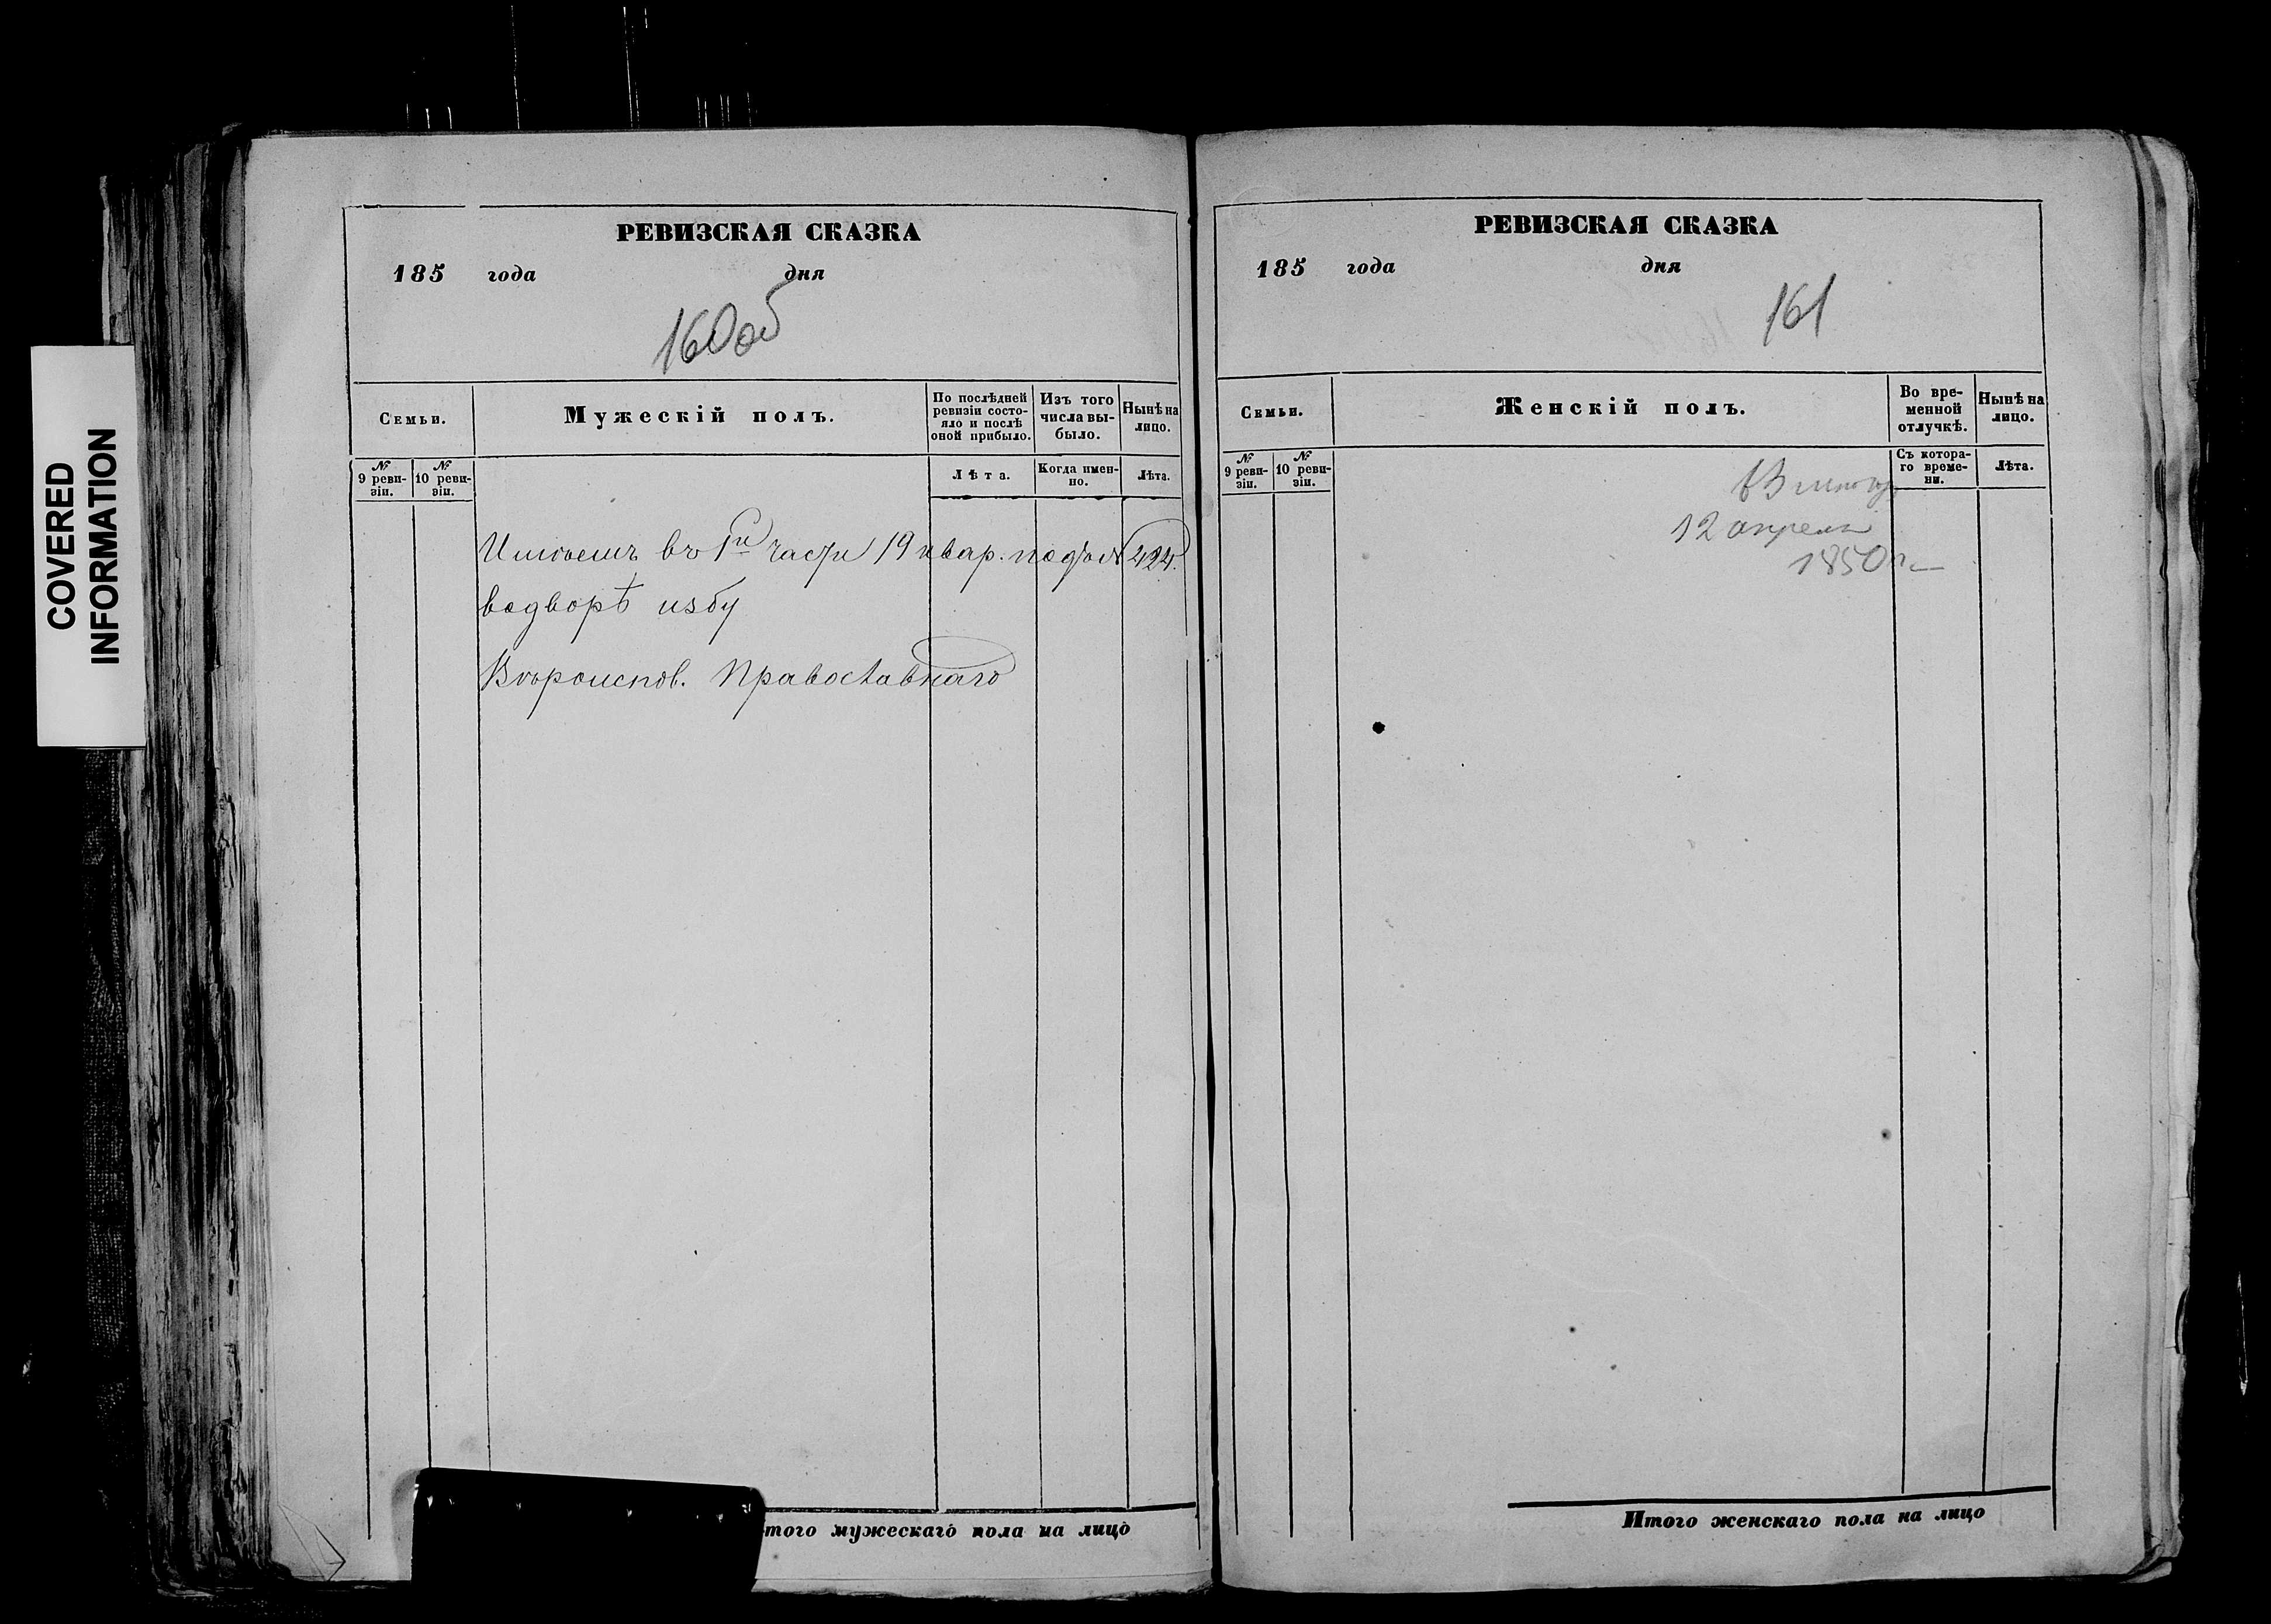 COVERED
INFORMATION
РЕВИЗСКАЯ СКАЗКА
185 года дня
160об
Семьи.
Мужескій полъ.
По послѣдней
ревизіи состо-
яло и послѣ
оной прибыло.
Изъ того
числа вы-
было.
Нынѣ на
лицо.
№
9 реви-
зіи.
№
10 реви-
зіи.
Лѣта.
Когда имен-
но.
Лѣта.
Имѣетъ въ 1й части 19 квар. подъ № 424.
водворѣ избу
Вѣроиспов. Православнаго
того мужескаго пола на лицо
РЕВИЗСКАЯ СКАЗКА
185 года дня
161
Семьи.
Женскій полъ.
Во вре-
менной
отлучкѣ.
Нынѣ на
лицо.
№
9 реви-
зіи.
№
10 реви-
зіи.
Съ котора-
го време-
ни.
Лѣта.
12 апреля
1850 г.
Итого женскаго пола на лицо